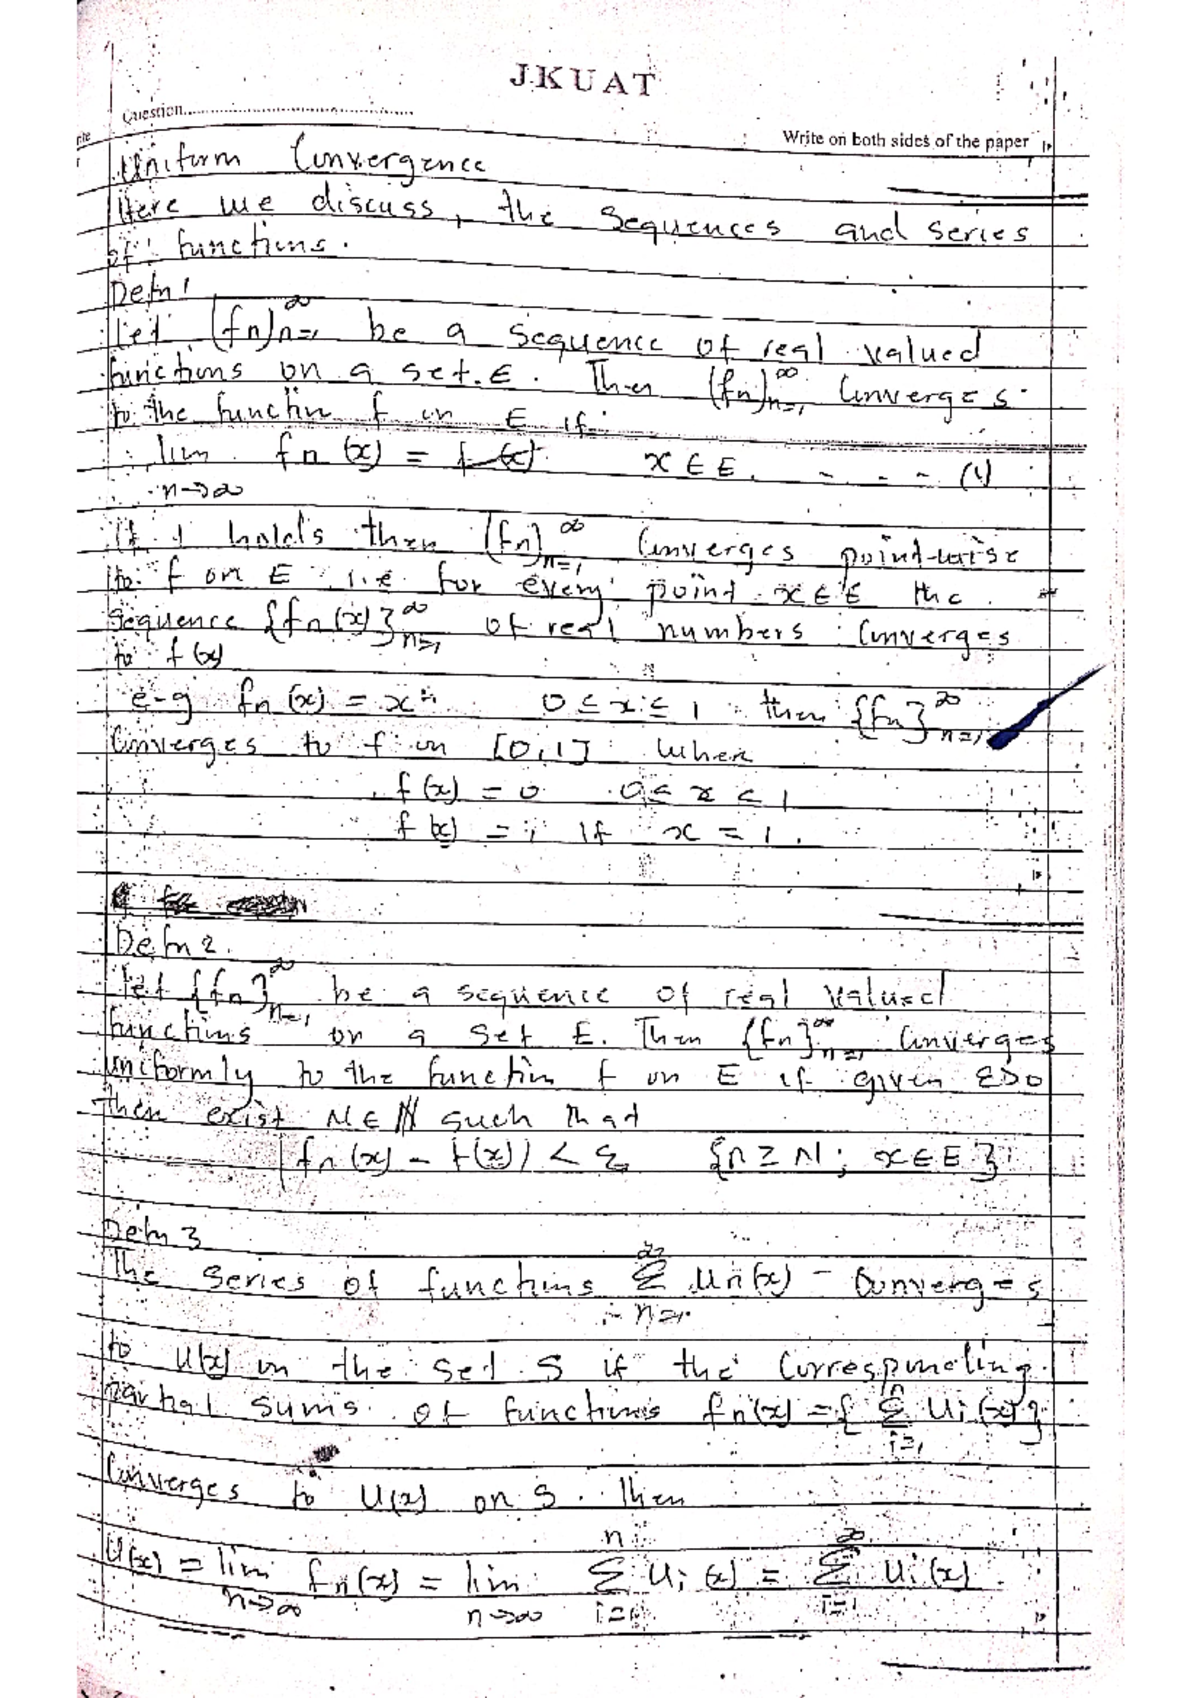 JKUAT
Question
Write on both sides of the paper
Uniform Convergence
Here we discuss, the sequences and series
of functions.
Defn 1
Let (fn)n=1^∞ be a sequence of real valued
functions on a set E. Then (fn)n=1^∞ Converges
to the function f on E if
lim fn (x) = f(x) x ∈ E. - - - (1)
n→∞
If 1 holds then (fn)n=1^∞ Converges point-wise
to f on E i.e for every point x ∈ E the
sequence {fn(x)}n=1^∞ of real numbers Converges
to f(x)
e-g fn (x) = x^n 0 ≤ x ≤ 1 then {fn}n=1^∞
Converges to f on [0,1] when
f(x) = 0 0 ≤ x < 1
f(x) = 1 if x = 1.
Defn 2.
Let {fn}n=1^∞ be a sequence of real valued
functions on a set E. Then {fn}n=1^∞ Converges
uniformly to the function f on E if given ε>0
then exist N ∈ ℕ such that
|fn(x) - f(x)| < ε {n ≥ N; x ∈ E}
Defn 3
The series of functions ∑n=1^∞ Un(x) - Converges
to U(x) on the set S if the Corresponding
partial sums of functions fn(x) = {∑i=1^n Ui(x)}
Converges to U(x) on S. Then
U(x) = lim n→∞ fn(x) = lim n→∞ ∑i=1^n Ui(x) = ∑i=1^∞ Ui(x).